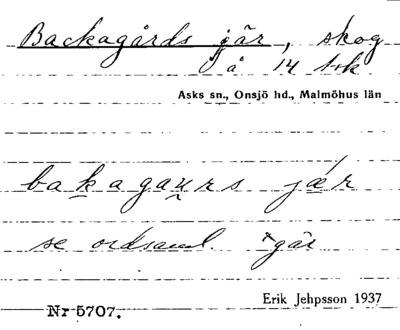 Backagårds jär, skog
å 14 1sk
Asks sn., Onsjö hd., Malmöhus län
bakagaurs jár
se ordsaml. *gär
Erik Jehpsson 1937
Nr 5707.